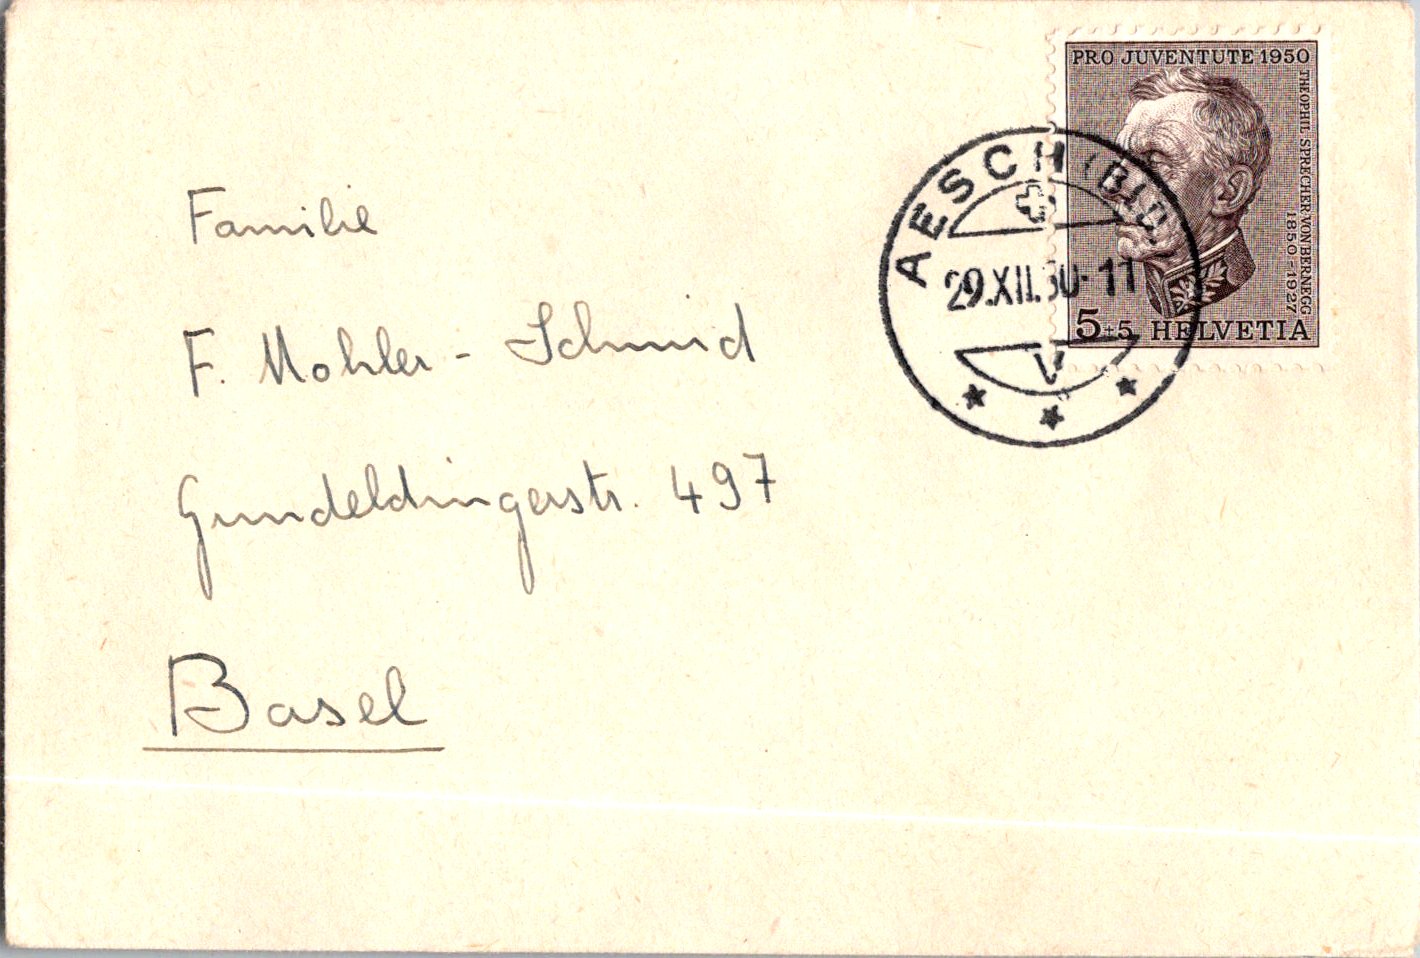 PRO JUVENTUTE 1950
THEOPHIL SPRECHER VON BERNEGG
1850-1927
5+5 HELVETIA
AESCH (BLD.)
29.XII.50-11
V
Familie
F. Mohler-Schmid
Gundeldingerstr. 497
Basel